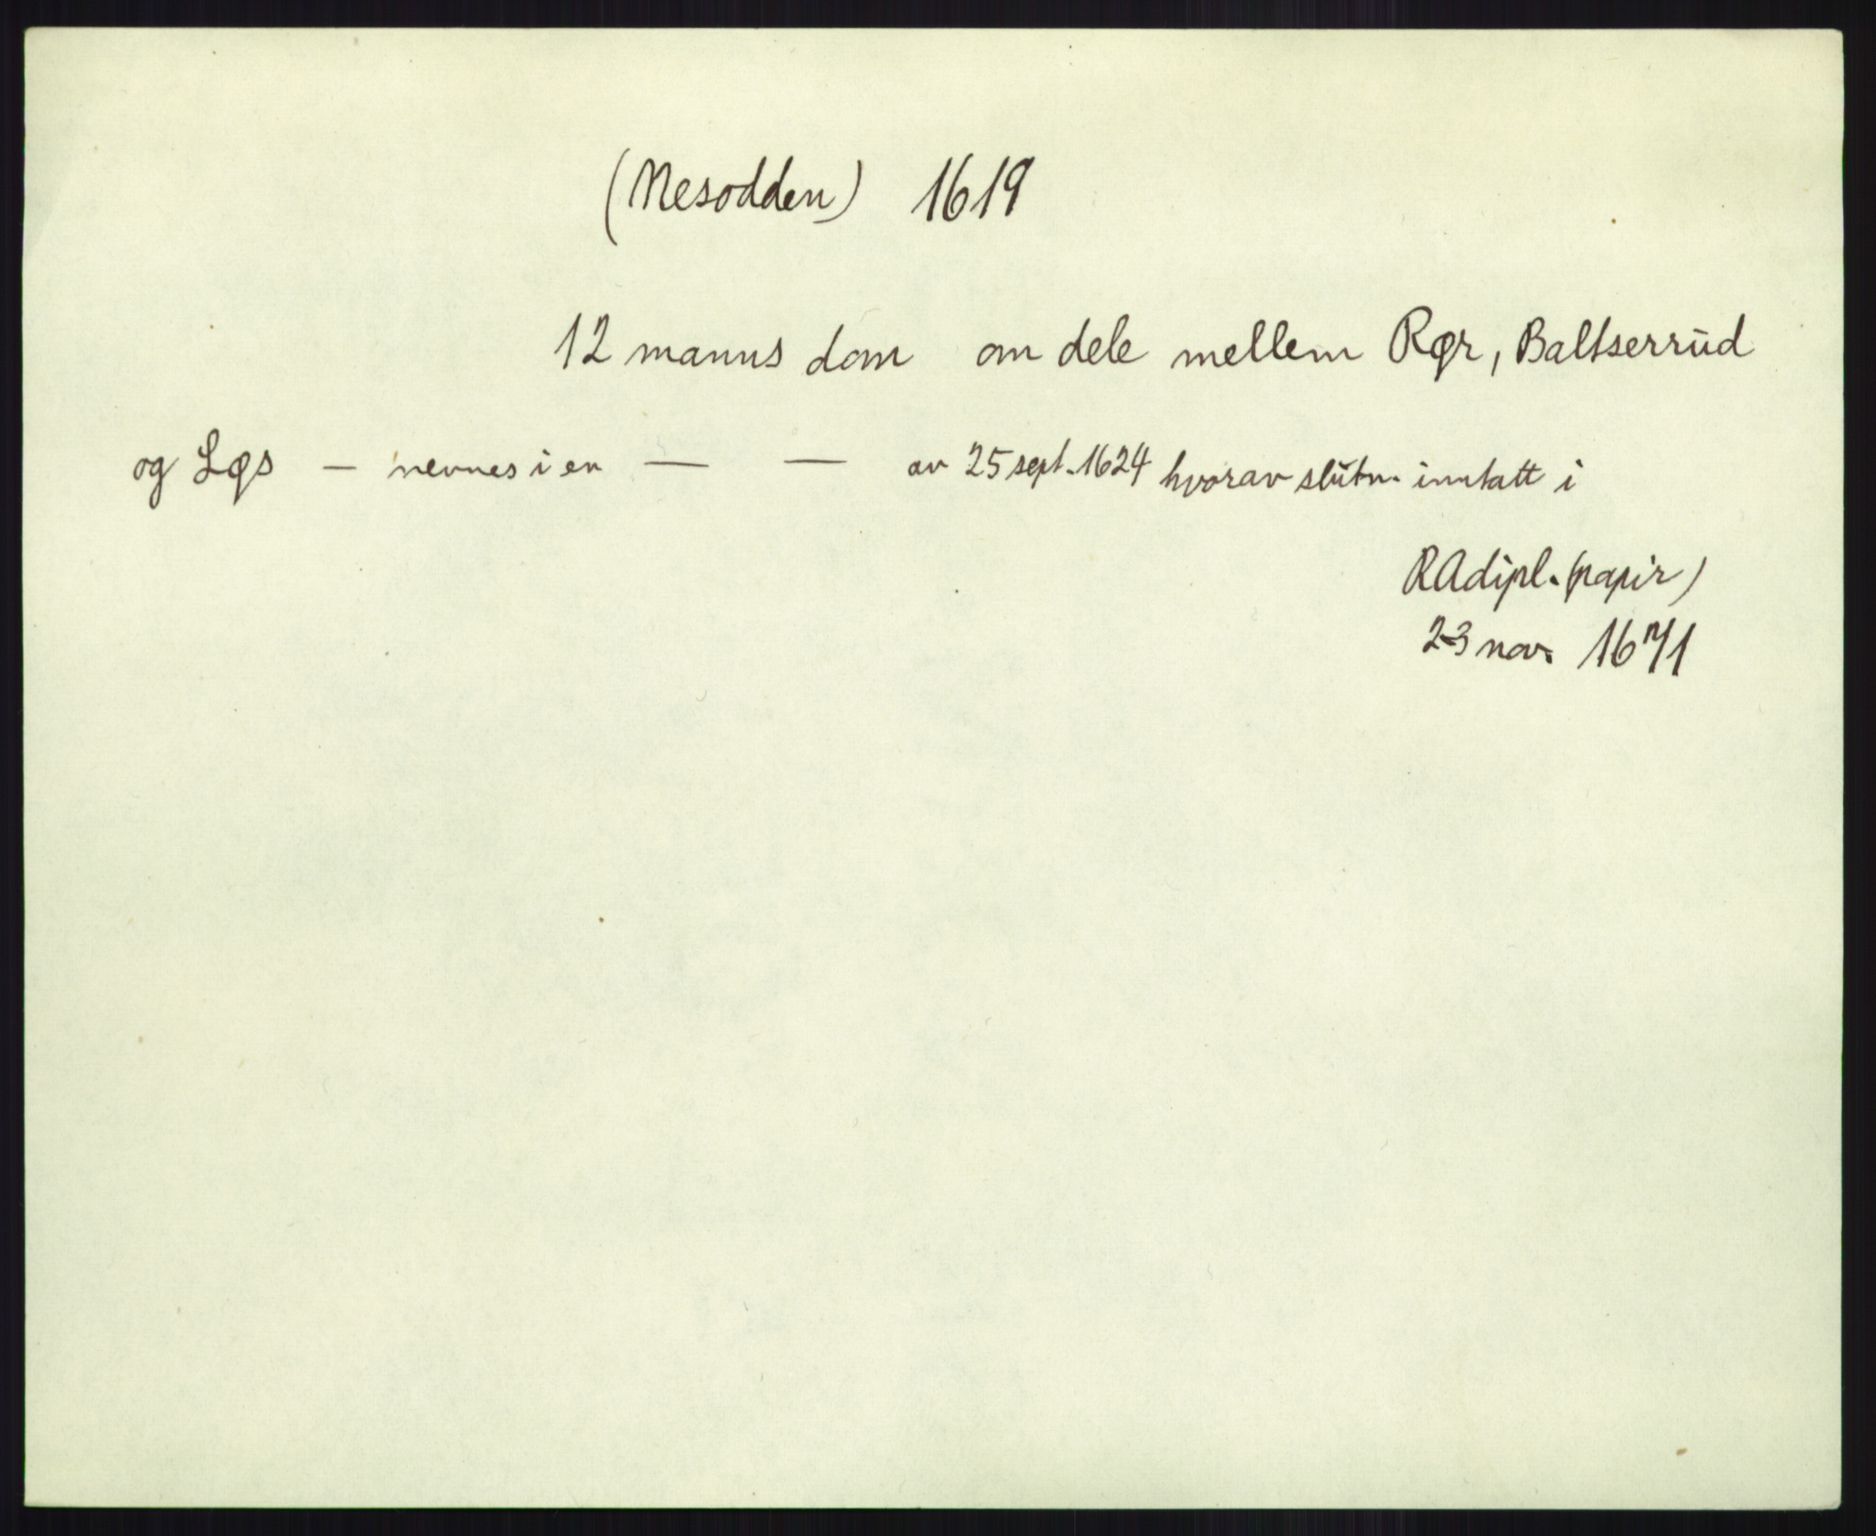 (Nesodden) 1619
12 manns dom om dele mellem Rør, Baltserrud
og Løs — nevnes i en — — av 25 sept. 1624 hvorav slutn. inntatt i
RAdipl. (papir)
23 nov. 1671